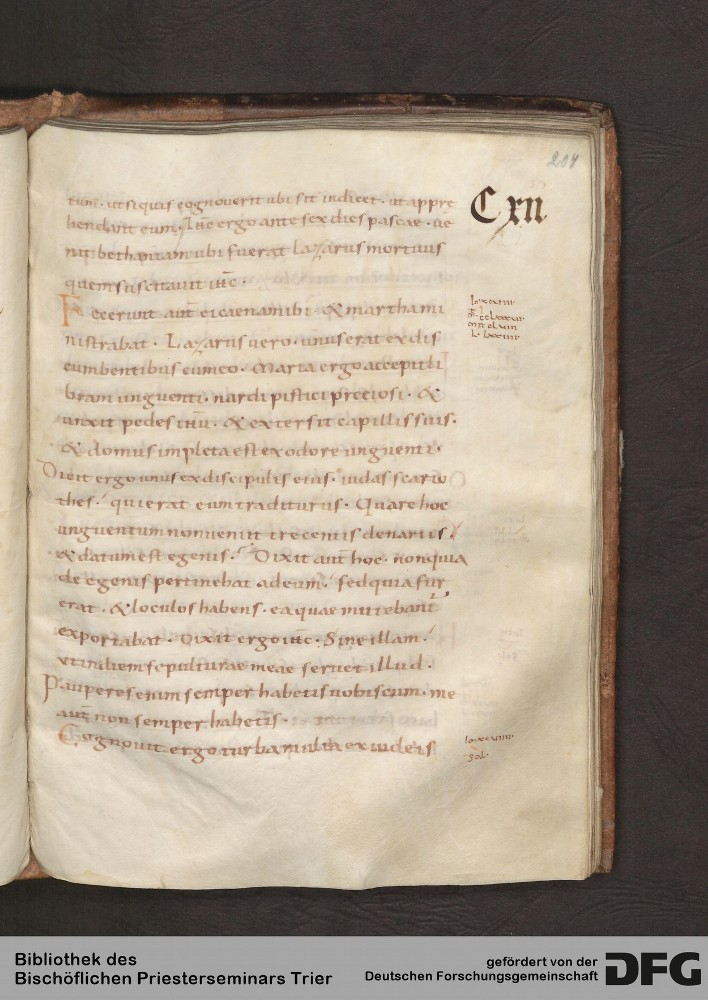 204
Cxii
tum · ut siquis cognoverit ubi sit indicet · ut appre
hendant eum · ih̅c ergo ante sex dies pascae · ue
nit bethaniam ubi fuerat lazarus mortuus
quem suscitavit ih̅c ·
Fecerunt aut̅ ei caenam ibi · & martha mi
nistrabat · Lazarus uero · unus erat ex dis
cumbentibus cum eo · Maria ergo accepit li
bram unguenti · nardi pistici preciosi · &
unxit pedes ih̅u · & extersit capillis suis ·
& domus impleta est ex odore unguenti ·
Dicit ergo unus ex discipulis eius · iudas scario
thes · qui erat eum traditurus · Quare hoc
unguentum non ueniit trecentis denariis
& datum est egenis · Dixit aut̅ hoc · non quia
de egenis pertinebat ad eum · sed quia fur
erat · & loculos habens · ea quae mittebant̅
exportabat · Dixit ergo ih̅c · Sine illam ·
ut in diem sepulturae meae seruet illud ·
Pauperes enim semper habetis uobiscum · me
aut̅ non semper habetis ·
Cognouit ergo turba multa ex iudeis
Bibliothek des
Bischöflichen Priesterseminars Trier
gefördert von der
Deutschen Forschungsgemeinschaft
DFG